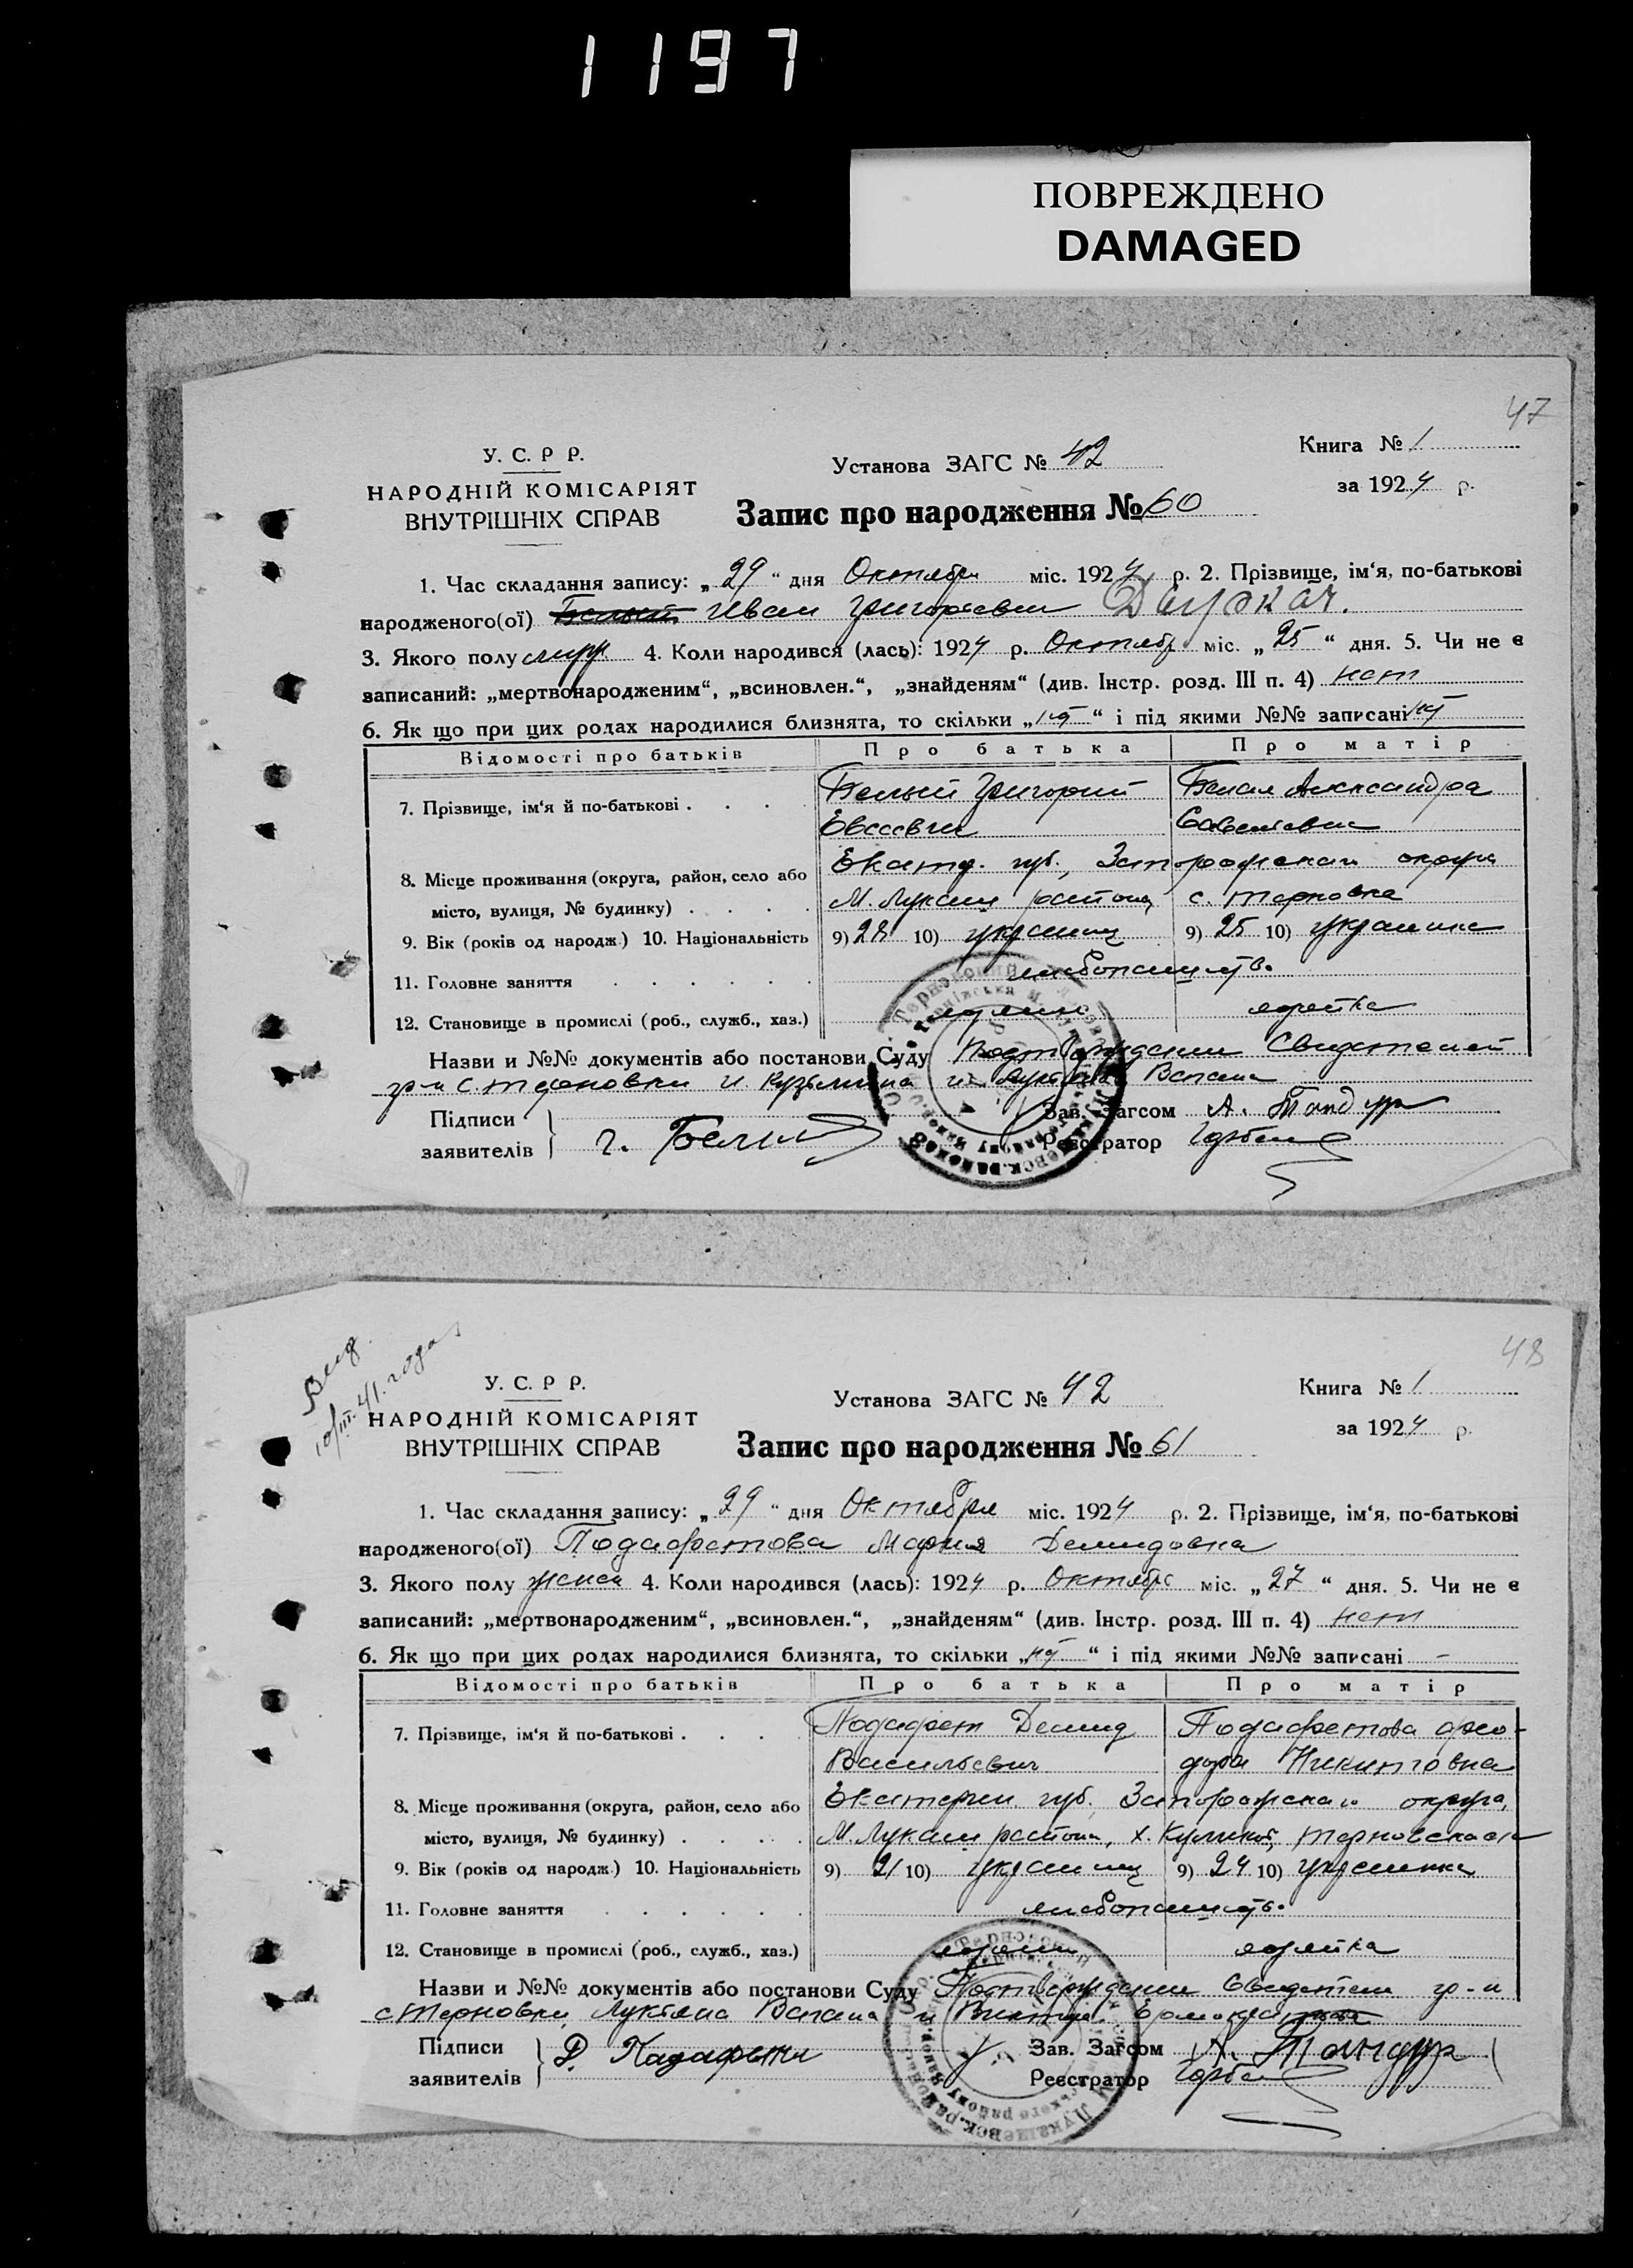 1197
ПОВРЕЖДЕНО
DAMAGED
47
У. С. Р Р.
НАРОДНІЙ КОМІСАРІЯТ
ВНУТРІШНІХ СПРАВ
Установа ЗАГС № 42
Книга № 1
за 1924 р.
Запис про народження № 60
1. Час складання запису: „29“ дня Октября міс. 1924 р. 2. Прізвище, ім‘я, по-батькові
народженого(ої) Иван Григориевич
3. Якого полу муж 4. Коли народився (лась): 1924 р. Октябр міс. „25“ дня. 5. Чи не є
записаний: „мертвонародженим“, „всиновлен.“, „знайденям“ (див. Інстр. розд. III п. 4) нет
6. Як що при цих родах народилися близнята, то скільки „нет“ і під якими №№ записані нет
Відомості про батьків Про батька Про матір
7. Прізвище, ім‘я й по-батькові . . . . Белый Григорий Белая Александра
Евсеевич Савельевна
8. Місце проживання (округа, район, село або Екатер. губ., Запорожской округи
місто, вулиця, № будинку) . . . . М. Лукаш района, с. Терновка
9. Вік (років од народж.) 10. Національність 9) 28 10) украинец 9) 25 10) украинка
11. Головне заняття . . . . . . хлебопашеств.
12. Становище в промислі (роб., служб., хаз.) хозяин хозяйка
Назви и №№ документів або постанови Суду Подтверждении Свидетелей
гр-н с. Терновки И. Кузьмина и Лукьяна
Підписи Зав. Загсом А. Тандур
заявителів Г. Белий Реєстратор Горбен
48
Вид.
10/III-41. года
У. С. Р Р.
НАРОДНІЙ КОМІСАРІЯТ
ВНУТРІШНІХ СПРАВ
Установа ЗАГС № 42
Книга № 1
за 1924 р.
Запис про народження № 61
1. Час складання запису: „29“ дня Октября міс. 1924 р. 2. Прізвище, ім‘я, по-батькові
народженого(ої) Подафетова Мария Демидовна
3. Якого полу женск 4. Коли народився (лась): 1924 р. Октябре міс. „27“ дня. 5. Чи не є
записаний: „мертвонародженим“, „всиновлен.“, „знайденям“ (див. Інстр. розд. III п. 4) нет
6. Як що при цих родах народилися близнята, то скільки „нет“ і під якими №№ записані -
Відомості про батьків Про батька Про матір
7. Прізвище, ім‘я й по-батькові . . . . Подафет Демид Подафетова Фео-
Васильевич дора Никитовна
8. Місце проживання (округа, район, село або Екатерин. губ., Запорожская округа,
місто, вулиця, № будинку) . . . . М. Лукаш района, х.
9. Вік (років од народж.) 10. Національність 9) 21 10) украинец 9) 24 10) украинка
11. Головне заняття . . . . . . хлебопашеств.
12. Становище в промислі (роб., служб., хаз.) хозяин хозяйка
Назви и №№ документів або постанови Суду Подтверждении Свидетели гр-н
с Терновки, Лукьяна и
Підписи Зав. Загсом А. Тандур
заявителів Д. Падафеты Реєстратор Горбен